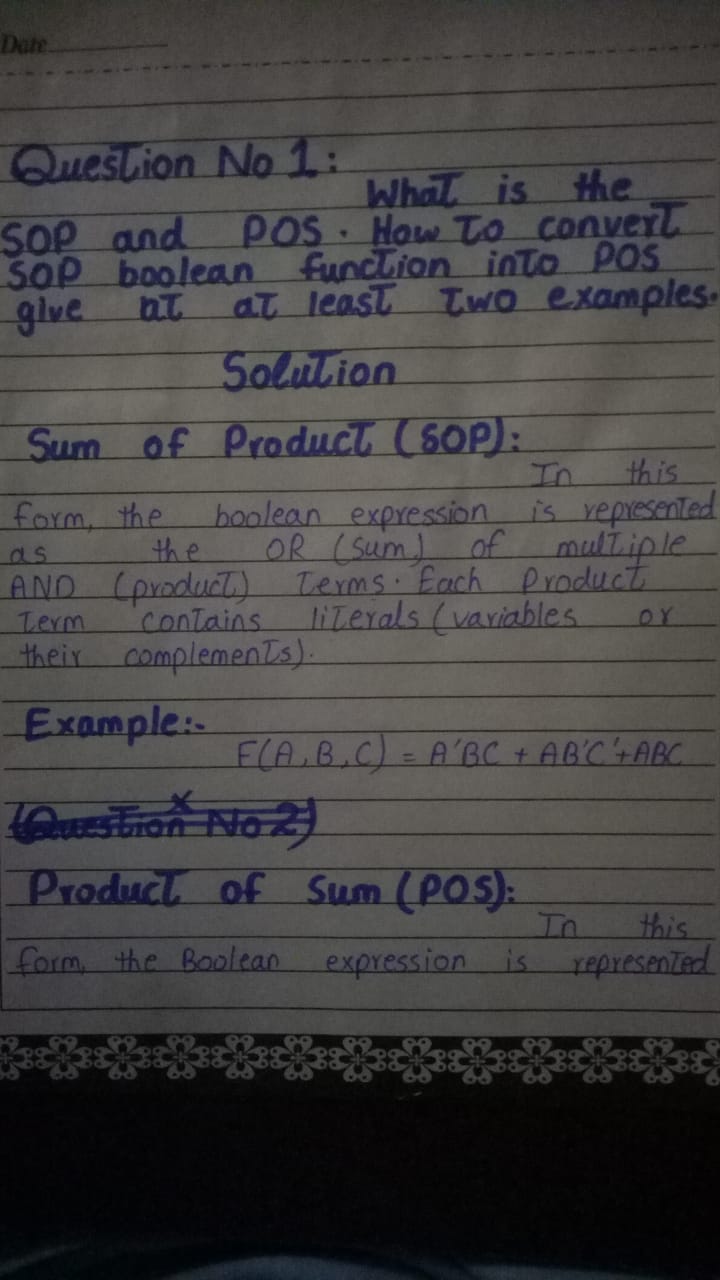 Date
Question No 1:
What is the
SOP and POS. How to convert
SOP boolean function into POS
give at at least two examples.
Solution
Sum of Product (SOP):
In this
form, the boolean expression is represented
as the OR (sum) of multiple
AND (product) terms. Each product
term contains literals (variables or
their complements).
Example:-
F(A,B,C) = A'BC + AB'C'+ABC
(Question No 2)
Product of Sum (POS):
In this
form, the Boolean expression is represented